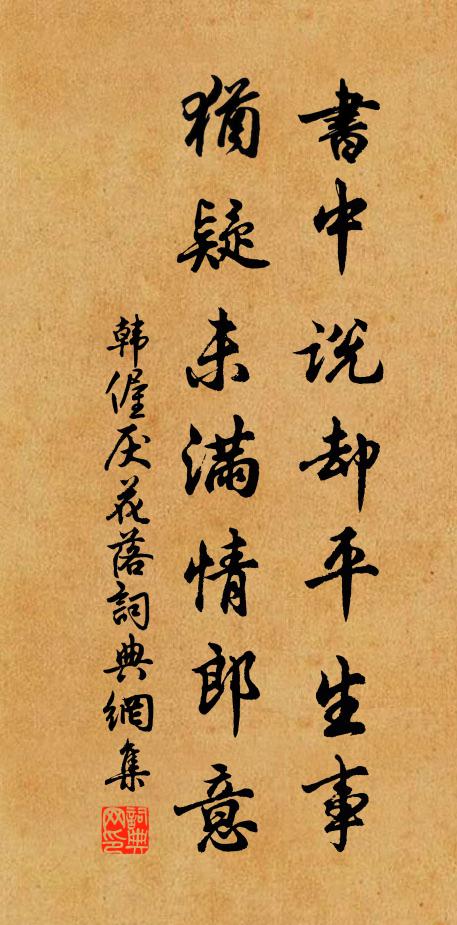 書中說却平生事
猶疑未滿情郎意
韩偓厌花落詞典網集
詞典网印